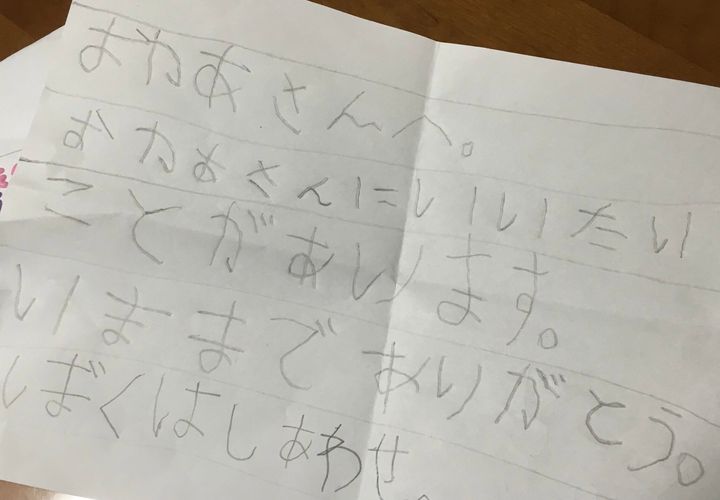 おかあさんへ。
おかあさんにいいたい
ことがあります。
いままでありがとう。
ぼくはしあわせ。